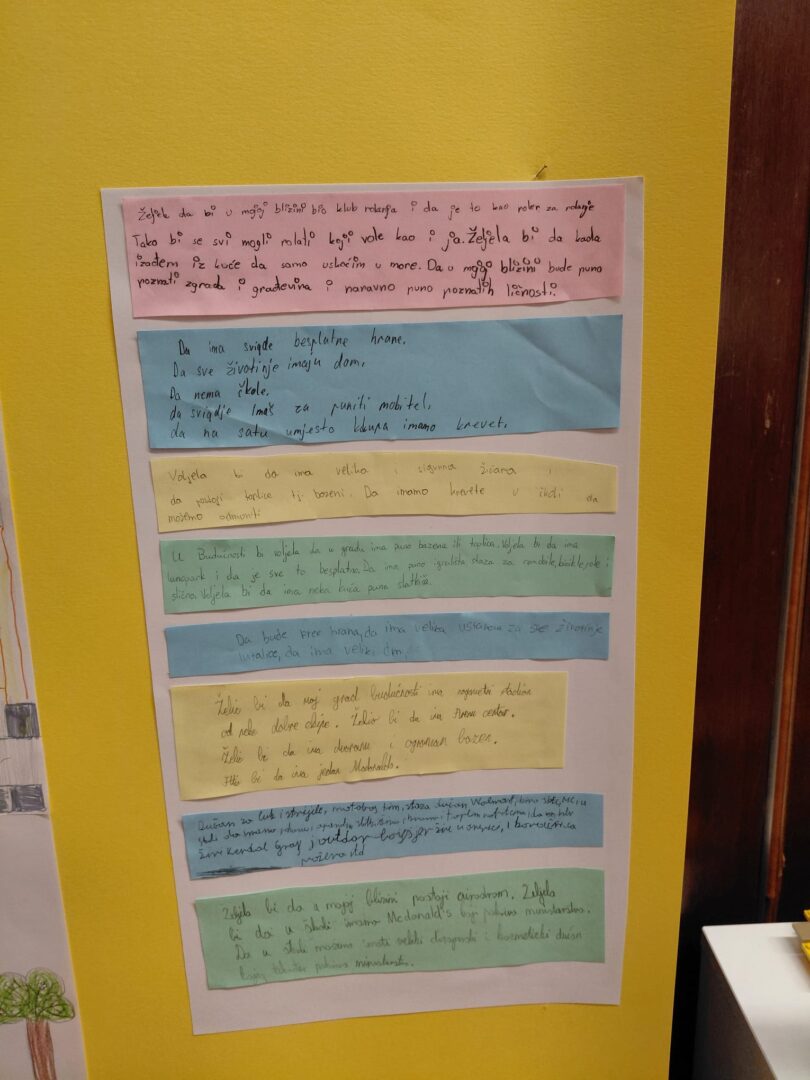 Željela da bi u mojoj blizini bio klub rolanja i da je to kao roler za rolanje
Tako bi se svi mogli rolati koji vole kao i ja. Željela bi da kada
izađem iz kuće da samo uskočim u more. Da u mojoj blizini bude puno
poznati zgrada i građevina i naravno puno poznatih ličnosti.
Da ima svigde besplatne hrane.
Da sve životinje imaju dom.
Da nema škole.
da svigdje imaš za puniti mobitel.
da na satu umjesto klupa imamo krevet.
Voljela bi da ima velika i sigurna žičara i
da postoji toplice tj. bazeni. Da imamo krevete u školi da
možemo odmoriti
U Budućnosti bi voljela da u gradu ima puno bazena ili toplica. Voljela bi da ima
lunapark i da je sve to besplatno. Da ima puno igrališta staza za romobile, bicikle, role i
slično. Voljela bi da ima neka kuća puna slatkiša.
Da bude free hrana, da ima velika ustanova za sve životinje
lutalice, da ima veliki
Želio bi da moj grad budućnosti ima nogometni stadion
od neke dobre ekipe. Želio bi da ima centar.
Želio bi da ima dvoranu i ogroman bazen.
bi da ima jedan Mcdonalds.
Dućan za luk i strijele, staza dućan, Walmart,
žive Kendal Gray
Željela bi da u mojoj blizini postoji airodrom. Željela
bi da u školi imamo McDonald's koji ministarstvo.
Da u školi moramo imati veliki i kozmetički dućan